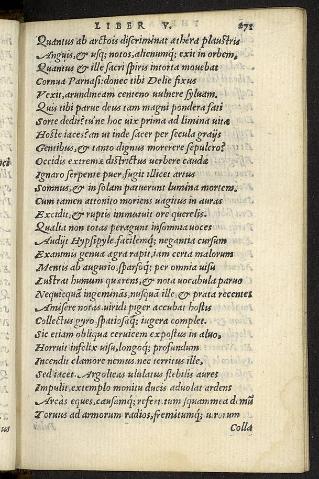 LIBER V. 271
Quantus ab arctois discriminat athera plaustris
Anguis, & usq; notos, alienumq; exit in orbem.
Quantus & ille sacri spiris intorta mouebat
Cornua Parnasi: donec tibi Delie fixus
Vexit, arundineam centeno uulnere syluam.
Quis tibi parue deus tam magni pondera fati
Sorte dedit: tu'ne hoc uix prima ad limina uitæ
Hoste iaces: an ut inde sacer per secula graijs
Gentibus, & tanto dignus morerere sepulcro?
Occidis extremæ districtus uerbere caudæ
Ignaro serpente puer, fugit illicet artus
Somnus, & in solam patuerunt lumina mortem.
Cum tamen attonito moriens uagitus in auras
Excidit, & ruptis immutuit ore querelis.
Qualia non totas peragunt insomnia uoces
Audijt Hypsipyle, facilemq; negantia cursum
Exanimis genua ægra rapit, iam certa malorum
Mentis ab augurio, sparsoq; per omnia uisu
Lustrat humum quærens, & nota uocabula paruo
Nequicquā ingeminās, nusquā ille, & prata recentes
Amisere notas. uiridi piger accubat hostis
Collectus gyro, spatiosaq; iugera complet.
Sic etiam obliqua ceruicem expostus in aluo.
Horruit infelix uisu, longoq; profundum
Incendit clamore nemus. nec territus ille,
Sed iacet. Argolicas ululatus flebilis aures
Impulit. extemplo monitu ducis aduolat ardens
Arcas eques, causamq; refert. tum squammea demū
Toruus ad armorum radios, fremitumq; uirorum
Colla